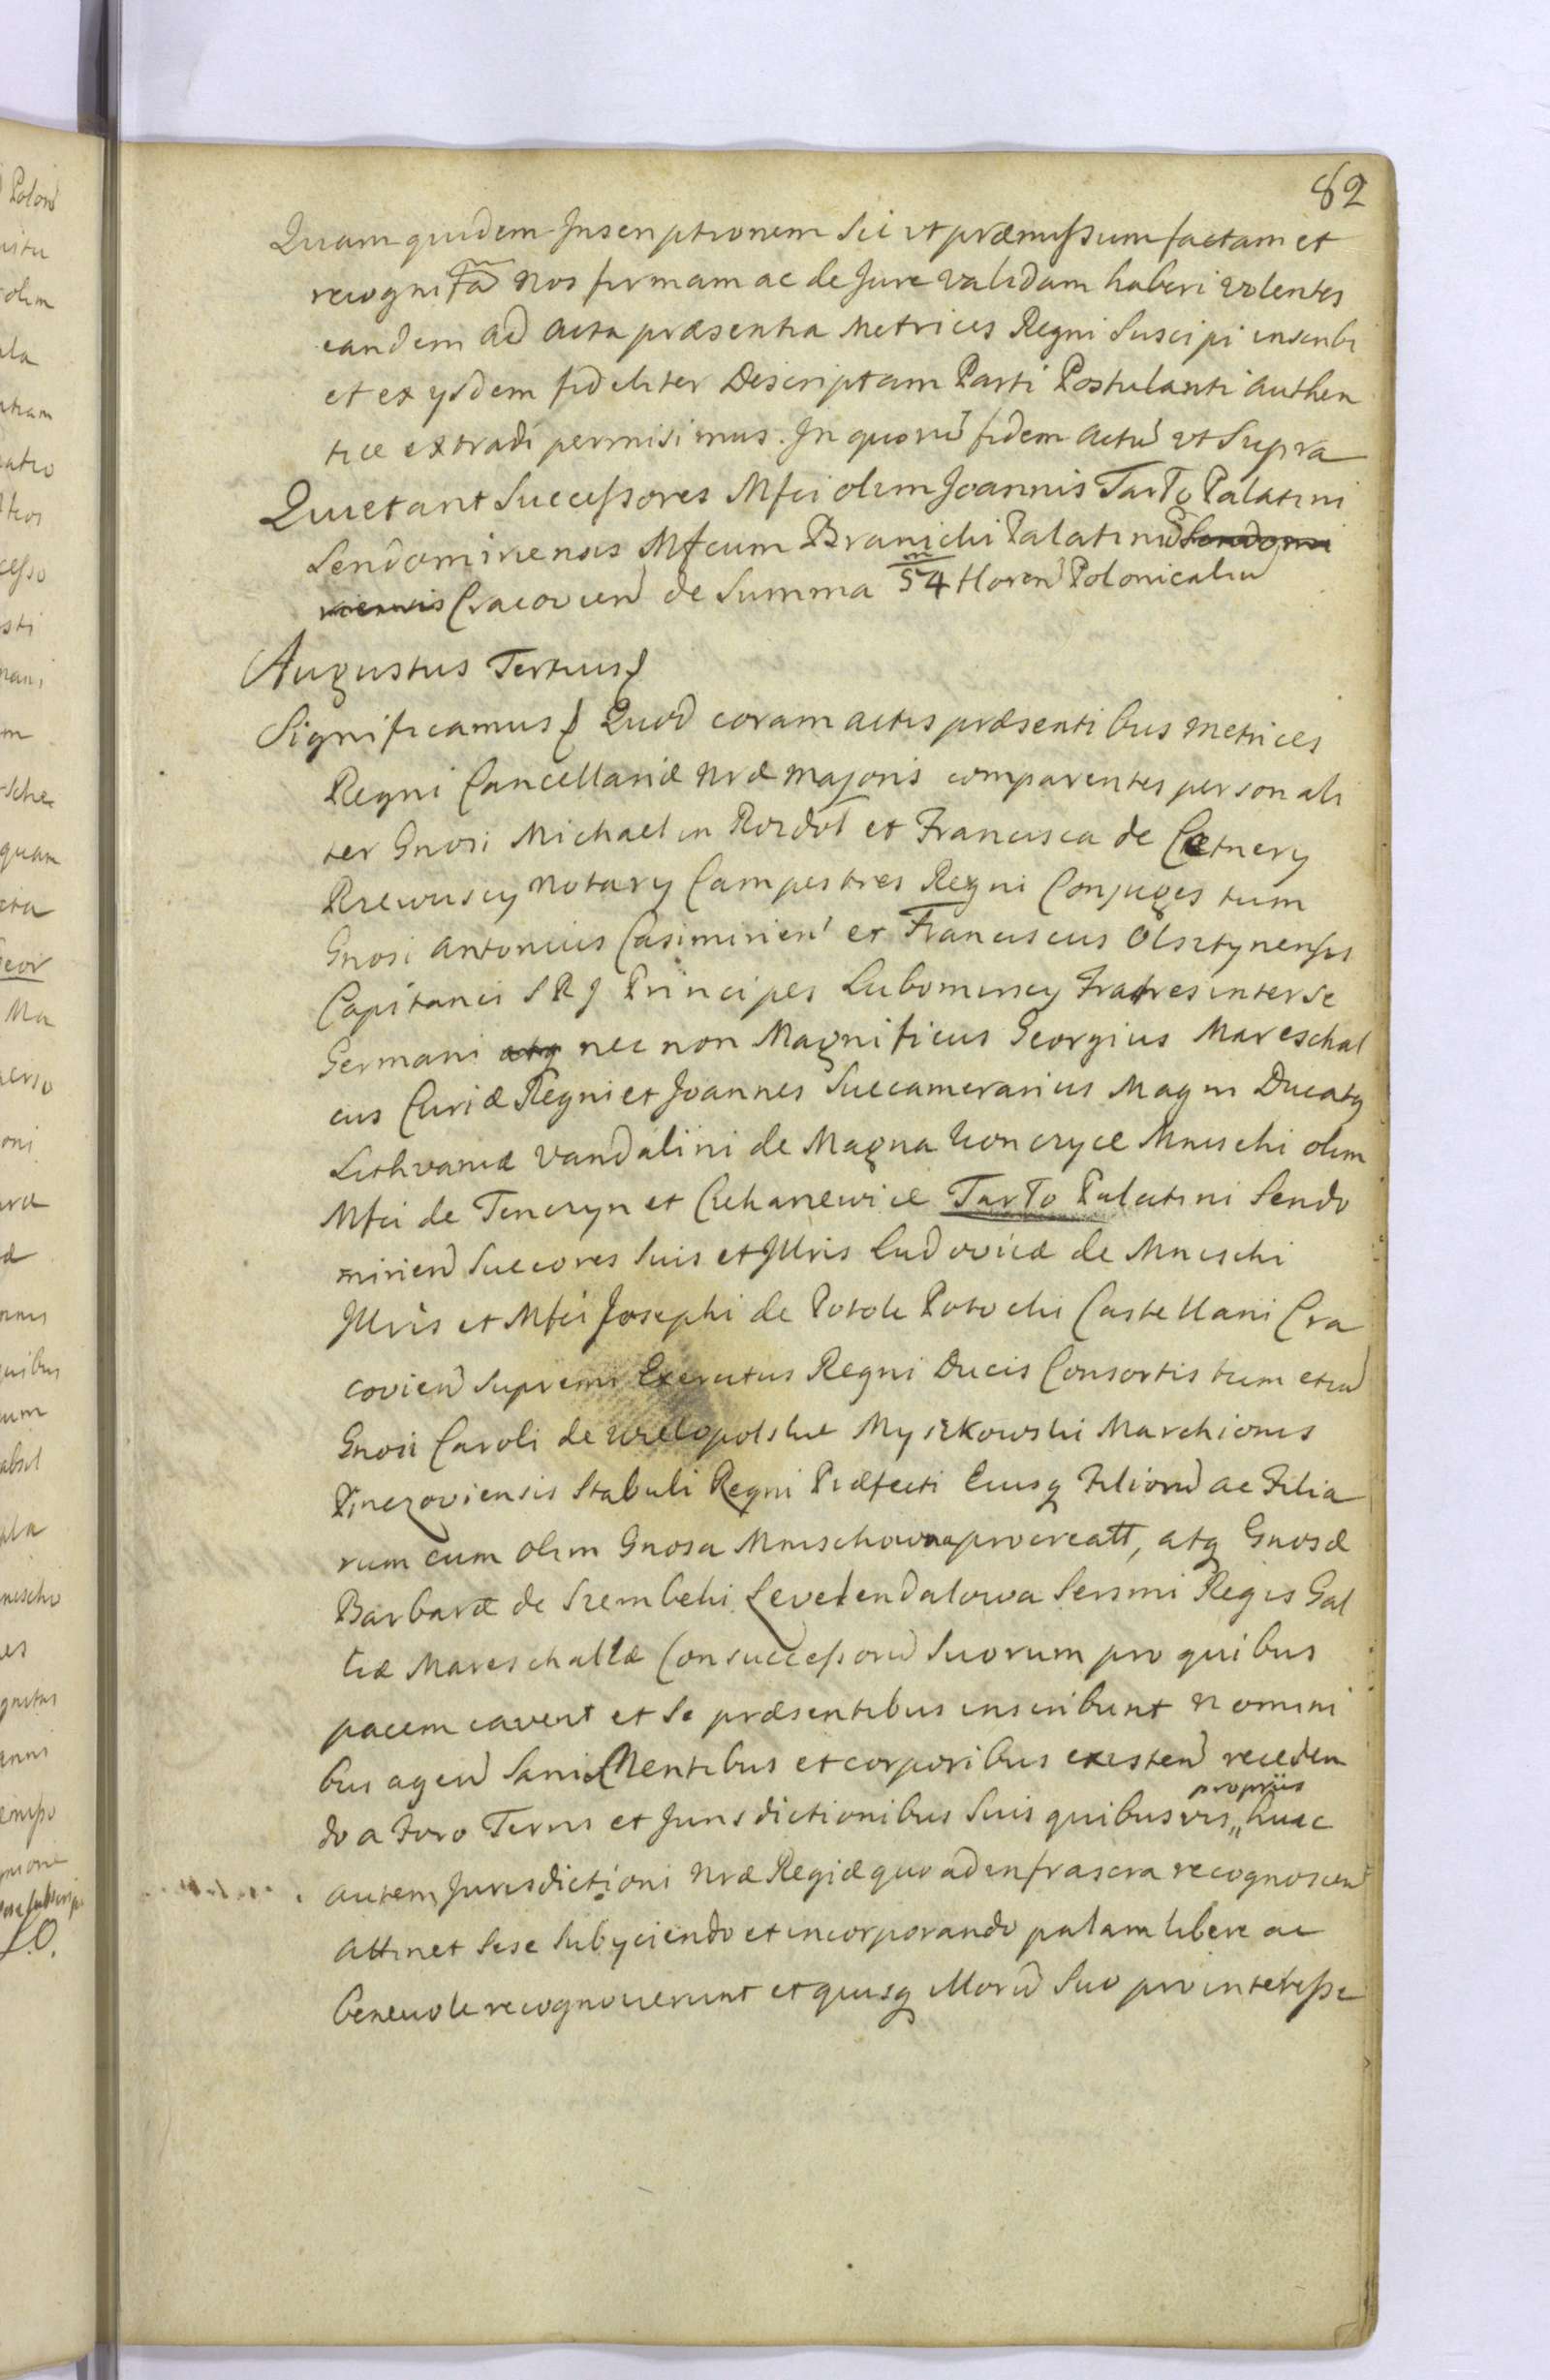 82
Quam quidem Inscriptionem sic ut præmissum factam et
recognitã nos firmam ac de Jure validam haberi volentes
eandem ad acta præsentia Metrices Regni Suscipi inscribi
et ex ysdem fideliter Descriptam Parti Postulanti authen
tice extradi permisimus. In quorũ fidem actũ ut Supra
Quietant Successores Mfci olim Joannis Tarło Palatini
Sendomiriensis Mfcum Branichi Palatinũ Sendomi
riensis Cracovien de Summa 54 m florenũ Polonicaliũ
Augustus Tertius
Significamus Quod coram actis præsentibus Metrices
Regni Cancellariæ nræ majoris comparentes personali
ter Gnosi Michael in Rozdoł et Francisca de Cetnery
Rzewuscy Notary Campestres Regni Conjuges tum
Gnosi Antonius Casimirien et Franciscus Olsztynensis
Capitanei S R J Principes Lubomirscy Fratres inter se
Germani atq nec non Magnificus Georgius Mareschal
cus Curiæ Regni et Joannes Succamerarius Magni Ducatq
Lithvaniæ Vandalini de Magna Konczyce Mnischi olim
Mfci de Tenczyn et Czekarzewice Tarło Palatini Sendo
mirien Succores suis et Jllris Ludovicæ de Mnischi
Jllris et Mfci Josephi de Potok Potochi Castellani Cra
covien Supremi Exercitus Regni Ducis Consortis tum etiã
Gnosi Caroli de Wielopolskie Myszkowski Marchionis
Pinczoviensis Stabuli Regni Præfecti Eiusq Filiorũ ac Filia
rum cum olim Gnosa Mnischowna procreatt, atq Gnosæ
Barbaræ de Szembeki Levelendalowa Sersmi Regis Gal
liæ Mareschallæ Consuccessorũ Suorum pro quibus
pacem cavent et se præsentibus inscribunt nomini
bus agen Sani Mentibus et corporibus existen receden
do a Foro Terris et Jurisdictionibus Suis quibusvis „ propriis huic
autem Jurisdictioni nræ Regiæ quo ad infrascra recognoscen
attinet sese subyciendo et incorporando palam libere ac
benevole recognoverunt et quisq Illorũ Suo pro interesse